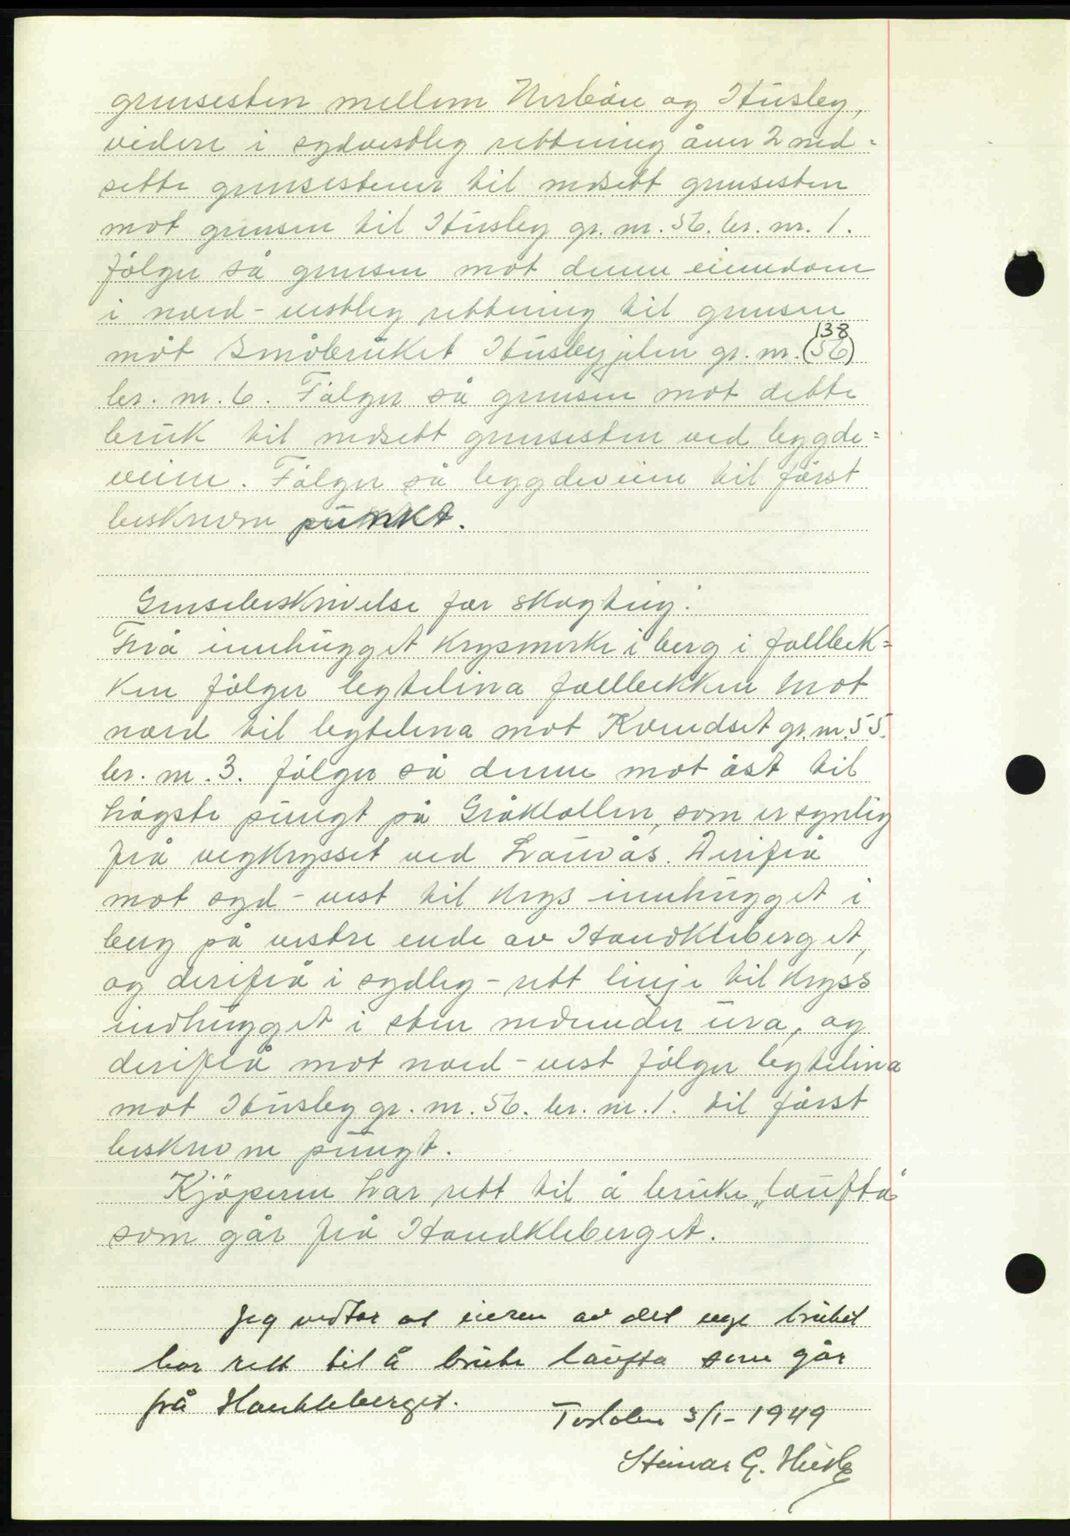 grensesten mellem Nerbøe og Húsby,
videre i sydvestlig rettning över 2 ned-
sette grensestener til nedsett grensesten
mot grensen til Húsby gr. nr. 56. br. nr. 1.
følger så grensen mot denne eiendom
i nord-vestlig rettning til grensen
138
mot Småbrúket Húsbyjelen gr. nr. (56)
br. nr. 6. Følger så grensen mot dette
brúk til nedsett grensesten ved bygde-
veien. Følger så bygdeveien til først
beskreven púnkt.
Grensebeskrivelse for skogteig:
Frå innhúgget krysmerke i berg i fallbek-
ken følger bytelina fallbekken mot
nord til bytelina mot Kvendset gr. nr. 55.
br. nr. 3. følger så denne mot øst til
høgste púngt på Gråkollen, som er synlig
frå vegkrysset ved Løúvås. Derifrå
mot syd-vest til krys innhúgget i
berg på vestre ende av Handkleberget,
og derifrå i sydleg-rett linje til kryss
indhúgget i sten nedunder úra, og
derifrå mot nord-vest følger bytelina
mot Húsby gr. nr. 56. br. nr. 1. til først
beskreven púngt.
Kjöperen har rett til å brúke „laúftå
som går frå Handkleberget.
Jeg vedtar at eieren av det nye brúket
har rett til å brúke laúfta som går
frå Hankleberget.
3/1-1949
Steinar G. Húsby